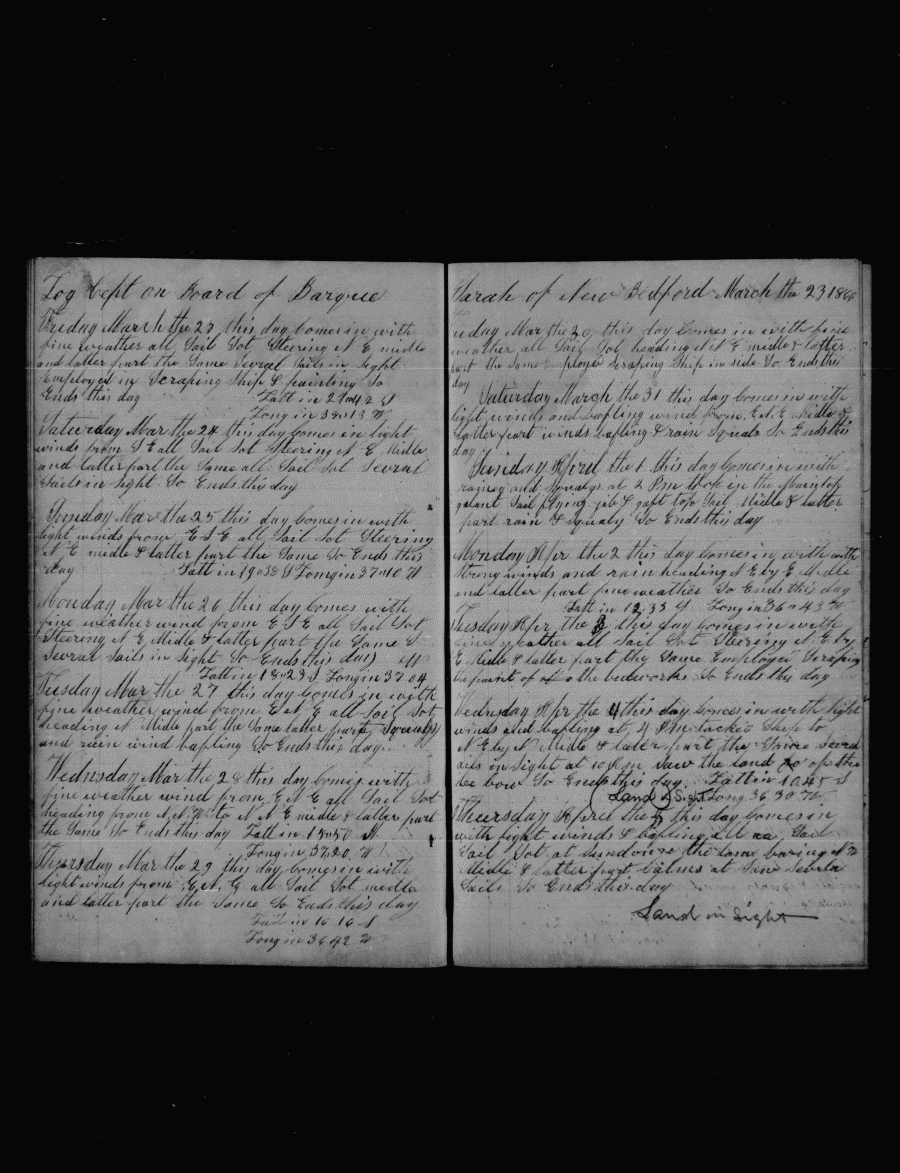 Log Kept on Board of Barque
Friday March the 23 this day Comes in with
fine weather all Sail Sot Steering N E midle
and latter part the Same Several Sails in Sight
Employed in Scraping Ship & painting So
Ends this day Latt in 21 04 S
Long in 38 13 W
Saturday Mar the 24 this day Comes in light
winds from S E all Sail Sot Steering N E Midle
and latter part the Same all Sail Sot Several
Sails in Sight So Ends this day
Sunday Mar the 25 this day Comes in with
light winds from E S E all Sail Sot Steering
N E midle & latter part the Same So Ends this
day Latt in 19 38 S Long in 37 10 W
Monday Mar the 26 this day Comes with
fine weather wind from E S E all Sail Sot
Steering N E Midle & latter part the Same S
Several Sails in Sight So Ends this day
Latt in 18 23 S Long in 37 04 W
Tuesday Mar the 27 this day Comes in with
fine weather wind from E N E all Sail Sot
heading N Midle part the Same latter part Squaly
and rain wind bafling So Ends this day
Wednsday Mar the 28 this day Comes with
fine weather wind from E N E all Sail Sot
heading from N N W to N N E midle & latter part
the Same So Ends this day Latt in 15 50
Long in 37 20 W
Thursday Mar the 29 this day Comes in with
light winds from E N E all Sail Sot midle
and latter part the Same So Ends this day
Latt in 16 16 S
Long in 36 42 W
Sarah of New Bedford March the 23 1866
Friday Mar the 30 this day Comes in with fine
weather all Sail Sot heading N E midle & latter
part the Same Employe Scraping Ship in side So Ends this
day
Saturday March the 31 this day Comes in with
light winds and bafling wind from E N E Midle &
latter part winds bafling & rain Squals So Ends this
day
Sunday April the 1 this day Comes in with
rainey and Squalys at 2 Pm took in the Maintop
galant Sail flying jib & gaft top Sail Midle & latter
part rain & squaly So Ends this day
Monday Apr the 2 this day Comes in with with
Strong winds and rain heading N E by E Midle
and latter part fine weather So Ends this day
Latt in 12 33 S Long in 36 43 W
Tuesday Apr the 3 this day Comes in with
fine weather all Sail Sot Steering N E by
E Midle & latter part the Same Employed Scraping
the paint of of the bulworks So Ends this day
Wednsday Apr the 4 this day Comes in with light
winds and bafling at 4 Pm tacked Ship to
N E by N Midle & later part the Same Several
Sails in Sight at 10 Am Saw the land of the
lee bow So Ends this day Latt in 10 45 S
Land in Sight Long 36 30 W
Thursday April the 5 this day Comes in
with light winds & bafling all Sail
Sail Sot at Sundown the land baring N W
Midle & latter part Calms at Saw Several
Sails So Ends this day
Land in Sight